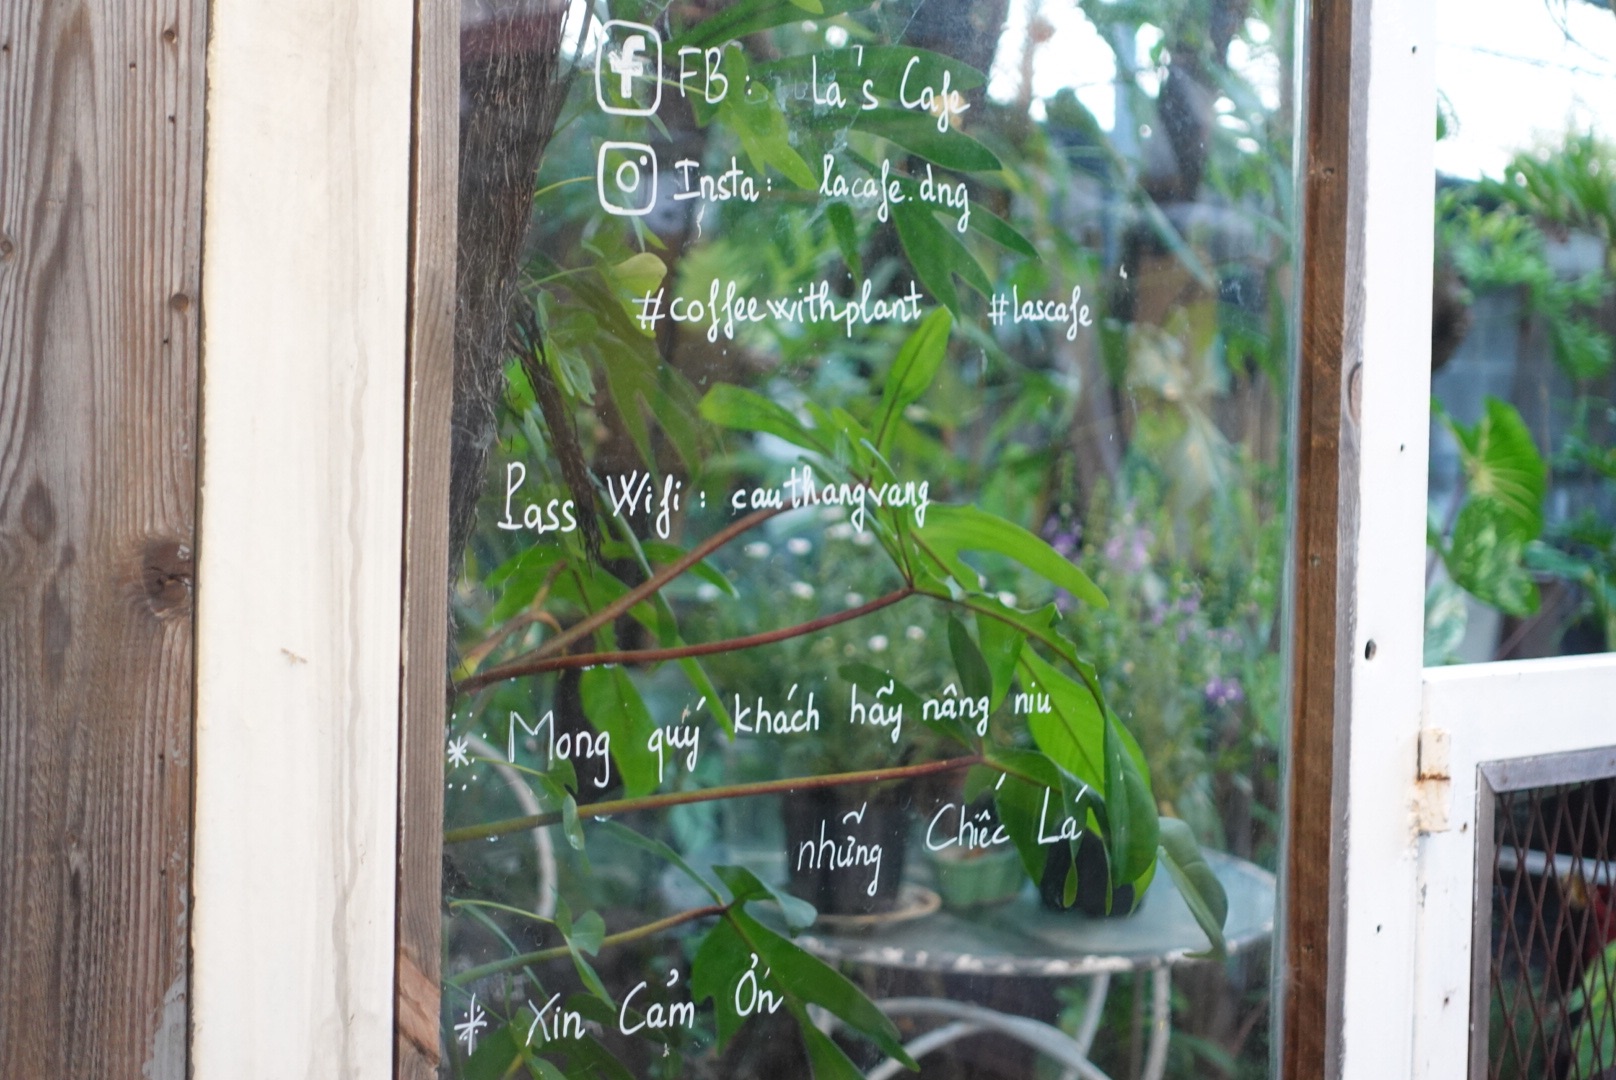 FB: Lá's Cafe
Insta: lacafe.dng
#coffeewithplant #lascafe
Pass Wifi: cauthangvang
* Mong quý khách hãy nâng niu
những Chiếc Lá
* Xin Cảm Ơn